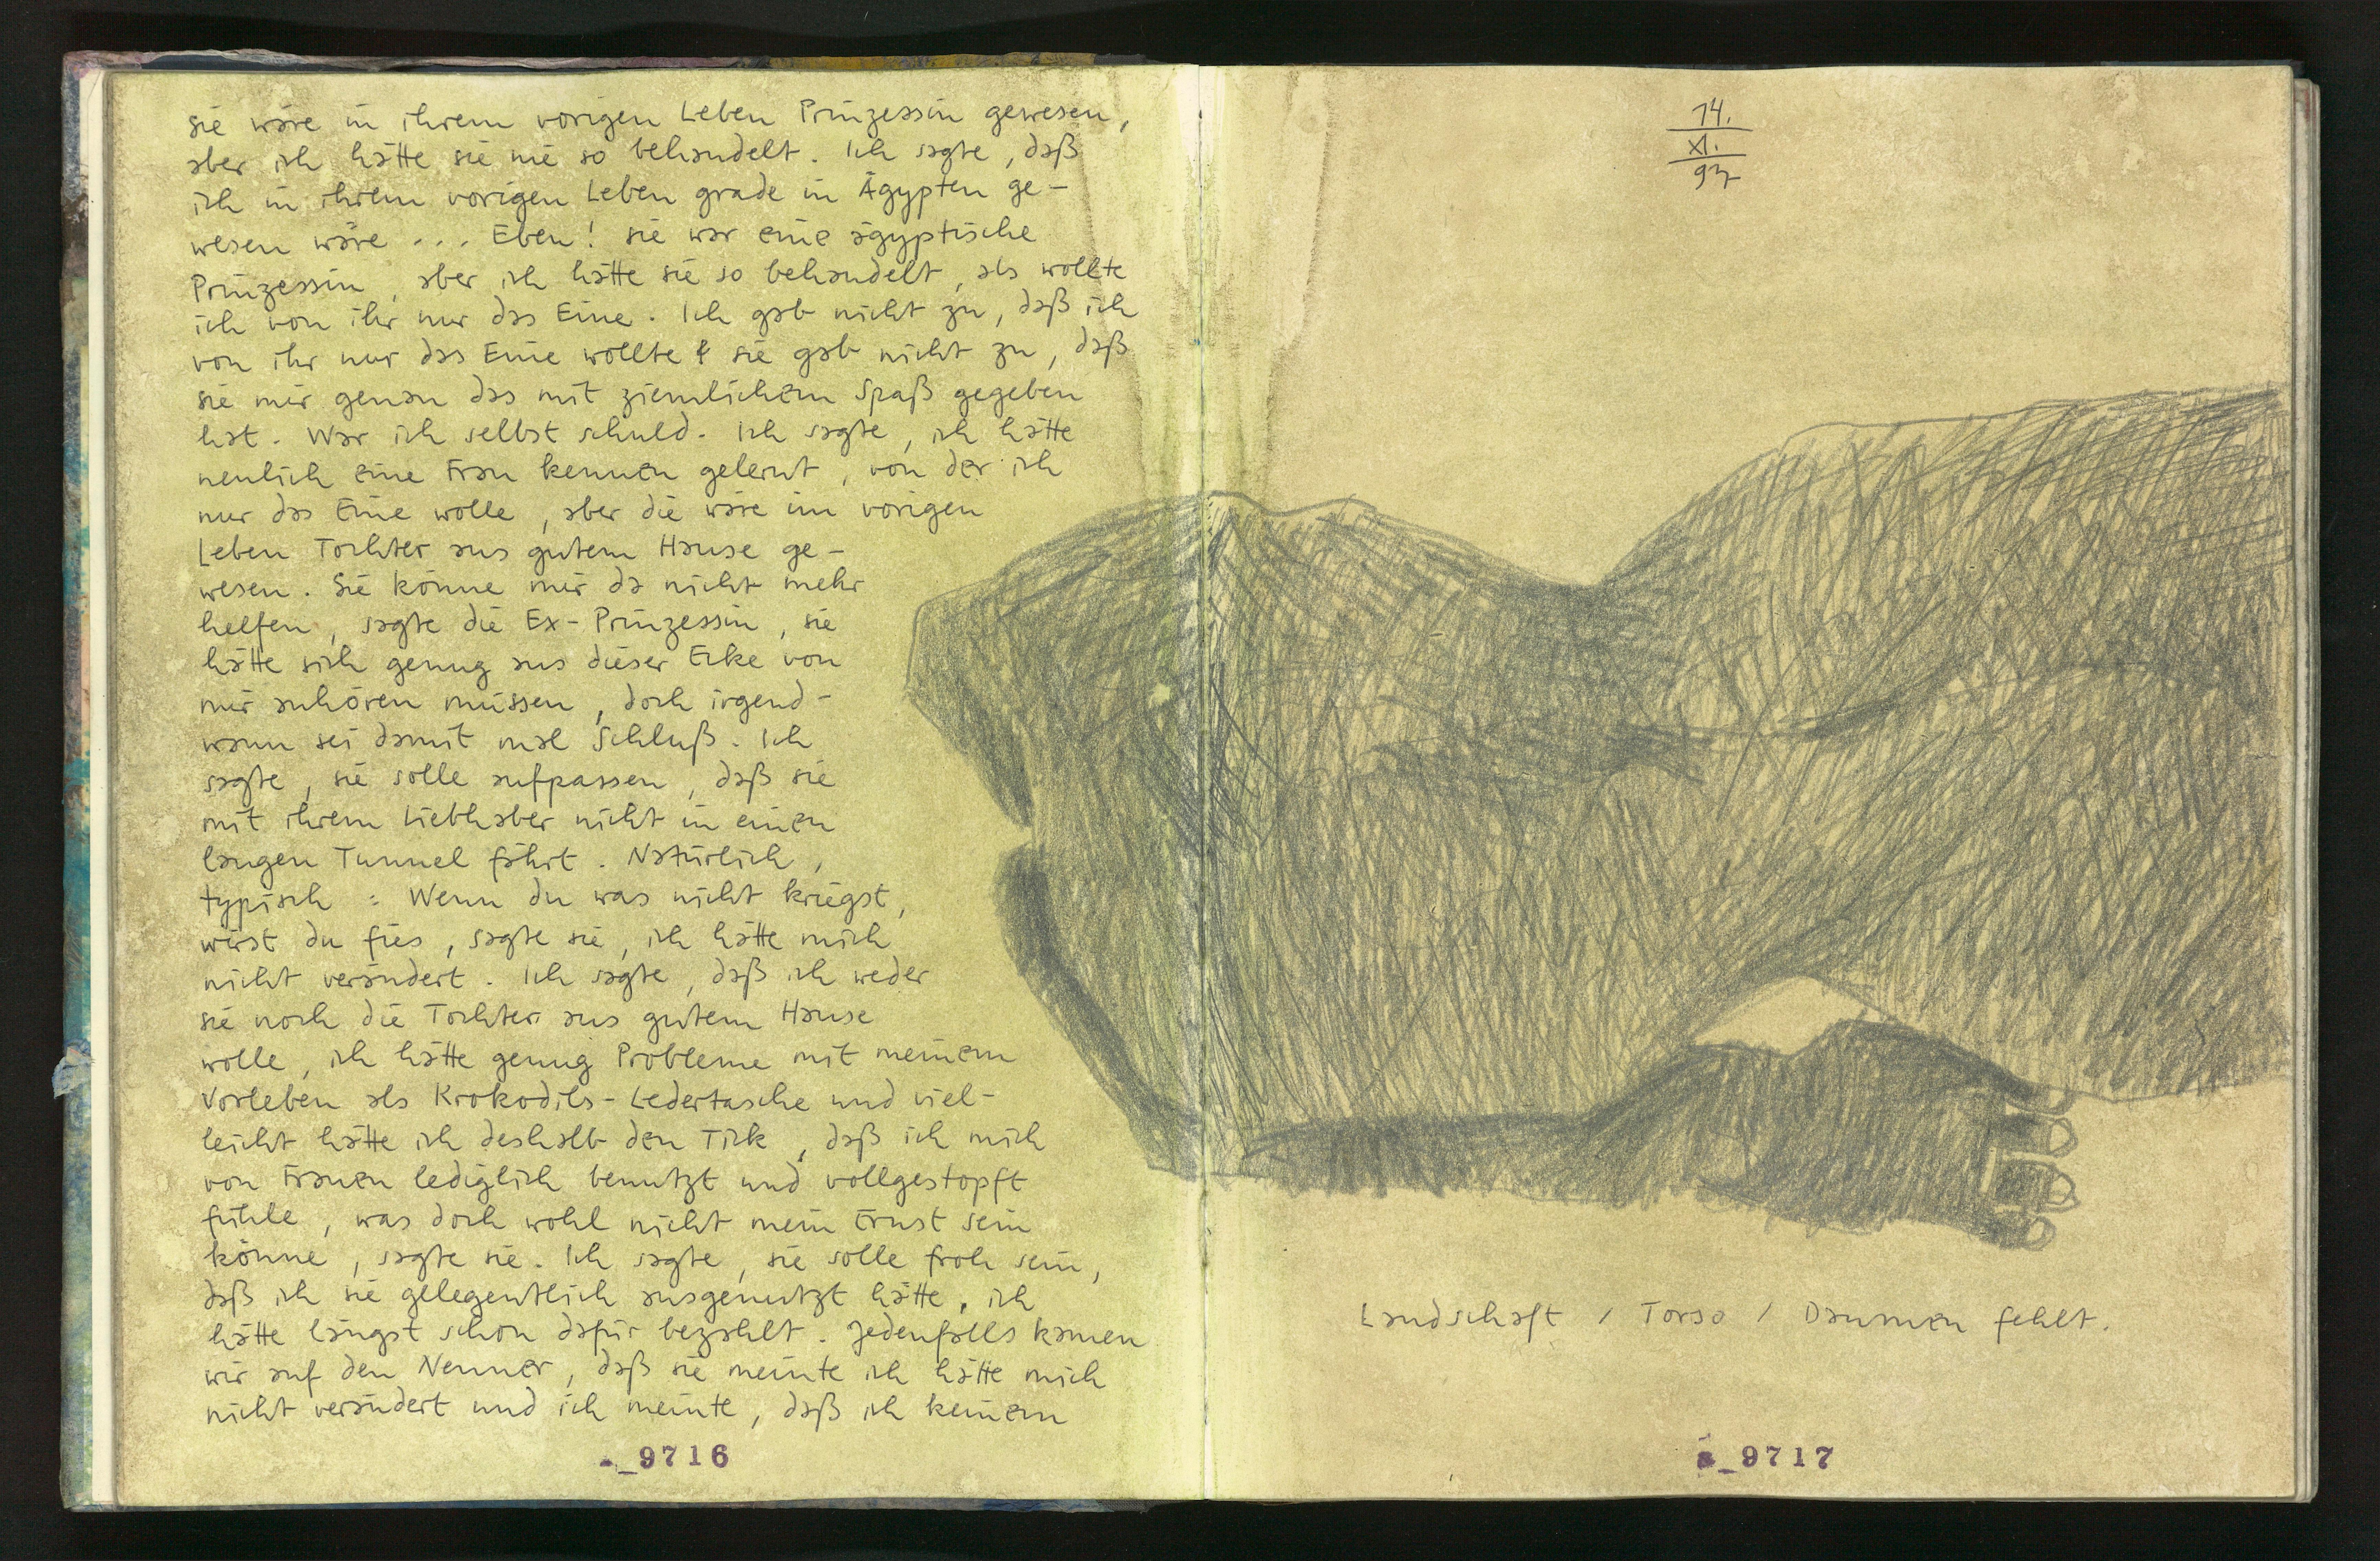 sie wäre in ihrem vorigen Leben Prinzessin gewesen,
aber ich hätte sie nie so behandelt. Ich sagte, daß
ich in ihrem vorigen Leben grade in Ägypten ge-
wesen wäre ... Eben! sie war eine ägyptische
Prinzessin, aber ich hätte sie so behandelt, als wollte
ich von ihr nur das Eine. Ich gab nicht zu, daß ich
von ihr nur das Eine wollte & sie gab nicht zu, daß
sie mir genau das mit ziemlichem Spaß gegeben
hat. War ich selbst schuld. Ich sagte, ich hätte
neulich eine Frau kennen gelernt, von der ich
nur das Eine wolle, aber die wäre im vorigen
Leben Tochter aus gutem Hause ge-
wesen. Sie könne mir da nicht mehr
helfen, sagte die Ex-Prinzessin, sie
hätte sich genug aus dieser Ecke von
mir anhören müssen, doch irgend-
wann sei damit mal Schluß. Ich
sagte, sie solle aufpassen, daß sie
mit ihrem Liebhaber nicht in einen
langen Tunnel fährt. Natürlich,
typisch: Wenn du was nicht kriegst,
wirst du fies, sagte sie, ich hätte mich
nicht verändert. Ich sagte, daß ich weder
sie noch die Tochter aus gutem Hause
wolle, ich hätte genug Probleme mit meinem
Vorleben als Krokodils-Ledertasche und viel-
leicht hätte ich deshalb den Tick, daß ich mich
von Frauen lediglich benutzt und vollgestopft
fühle, was doch wohl nicht mein Ernst sein
könne, sagte sie. Ich sagte, sie solle froh sein,
daß ich sie gelegentlich ausgenutzt hätte, ich
hätte längst schon dafür bezahlt. Jedenfalls kamen
wir auf den Nenner, daß sie meinte ich hätte mich
nicht verändert und ich meinte, daß ich keinem
_9716
14.
XI.
97
Landschaft / Torso / Daumen fehlt.
_9717